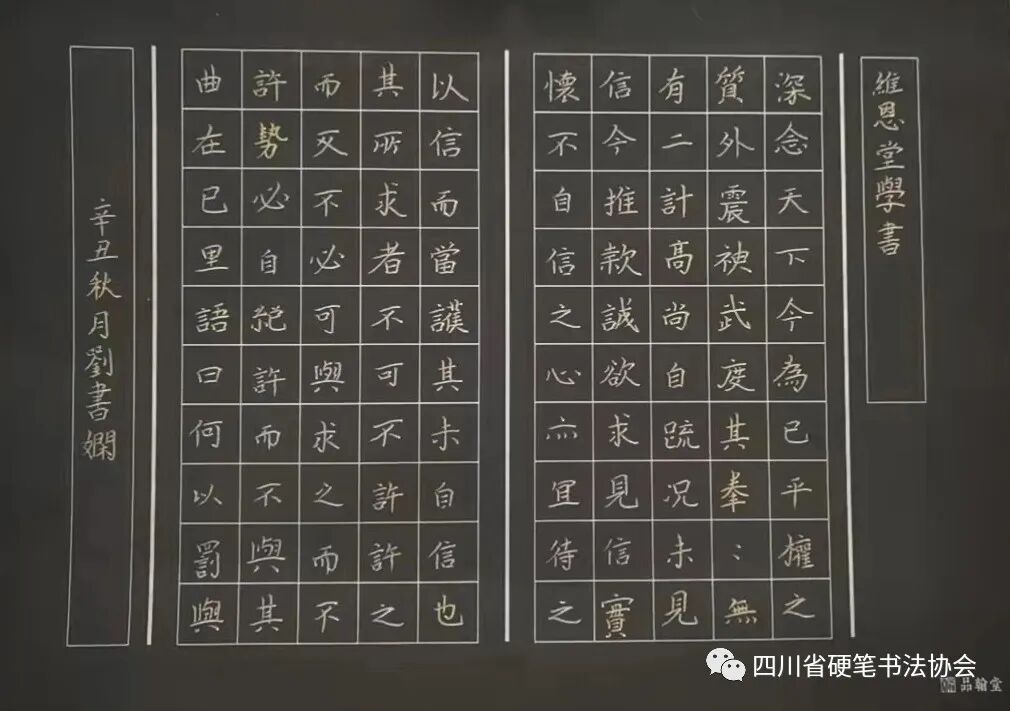 維恩堂學書
深念天下今為已平權之
質外震神武度其拳：無
有二計高尚自疏况未見
信今推款誠欲求見信實
懷不自信之心亦宜待之
以信而當護其未自信也
其所求者不可不許許之
而反不必可與求之而不
許勢必自絕許而不與其
曲在已里語曰何以罰與
辛丑秋月劉書嫻
四川省硬笔书法协会
品翰堂